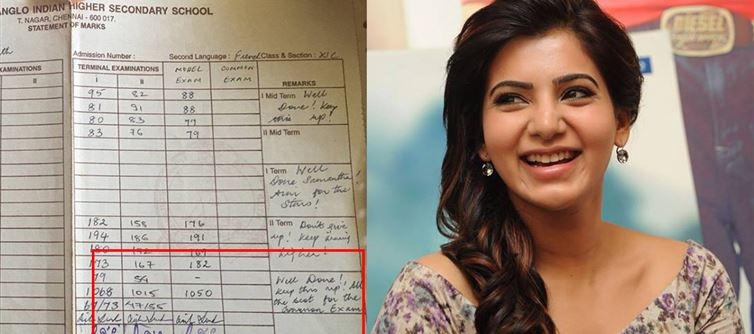 ANGLO INDIAN HIGHER SECONDARY SCHOOL
T. NAGAR, CHENNAI - 600 017.
STATEMENT OF MARKS
Admission Number : Second Language : French Class & Section : XI C
EXAMINATIONS TERMINAL EXAMINATIONS MODEL EXAM COMMON EXAM REMARKS
II I II
95 82 88 I Mid Term Well
81 91 88 Done! Keep
80 83 77 this up!
83 76 79 II Mid Term
I Term Well
Done Samantha!
Aim for the
Stars!
182 158 176 II Term Don't give
194 186 191 up! Keep aiming
180 169 higher!
173 167 182
79 54 Well Done!
1068 1015 1050 keep this up! All
67/73 47/55 the best for the
Common Exam
DIESEL